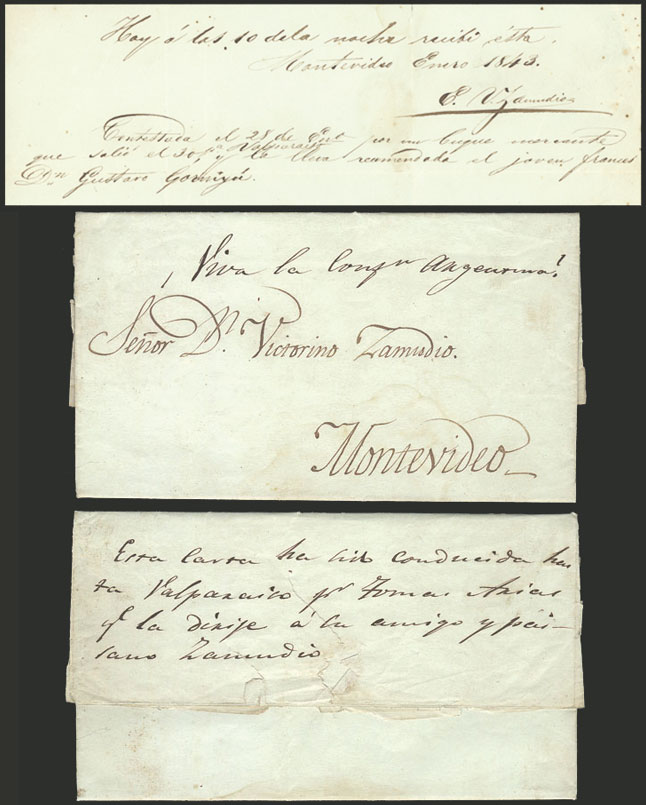 Hoy á las 10 de la noche recibi ésta.
Montevideo Enero 1843.
Contestada el 28 de por un buque mercante
que salió el 30 pª Valparaiso y la lleva recomendada el joven frances
Dn Gustavo
¡Viva la Confn Argentina!
Señor Dn. Victorino Zamudio.
Montevideo
Esta carta ha sido conducida has
ta Valparaiso pr Tomas Arias
qe la dirije á su amigo y pai-
sano Zamudio